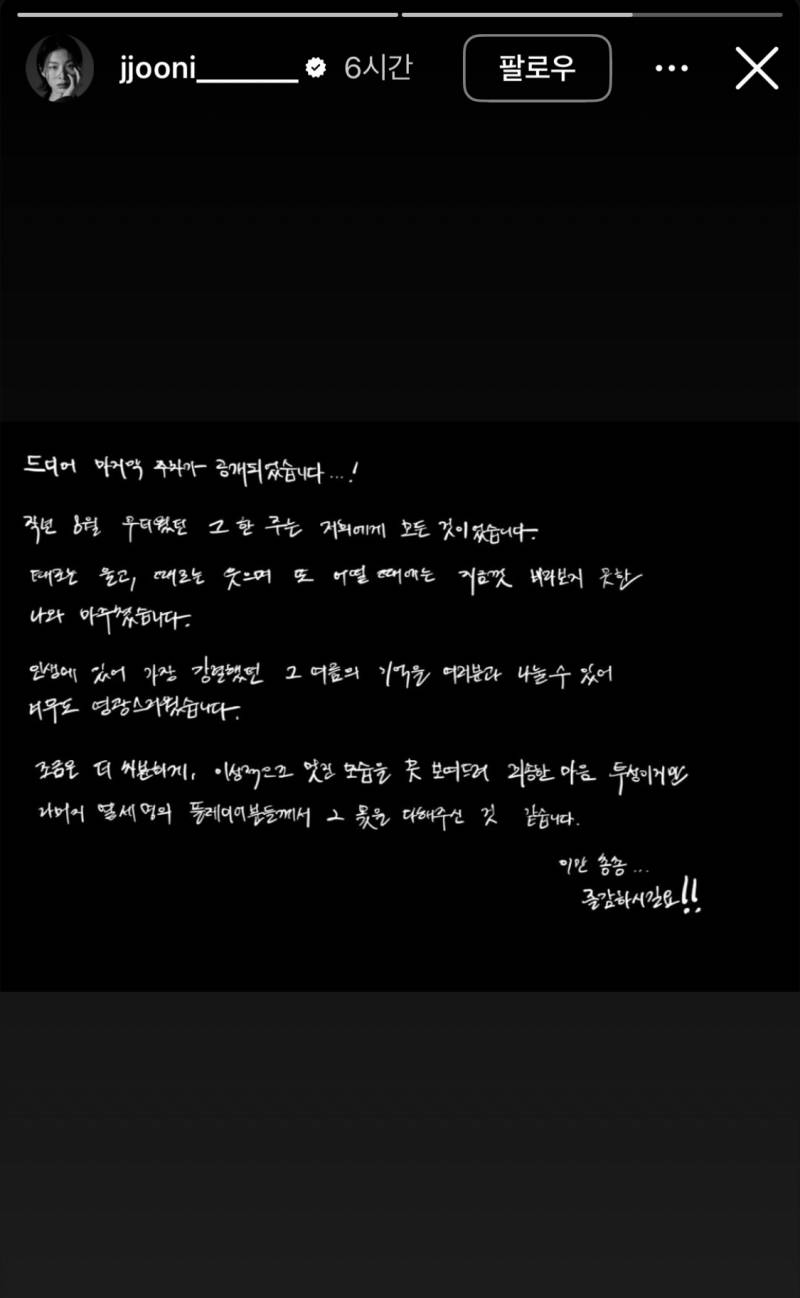 jjooni_______ 6시간 팔로우
드디어 마지막 주차가 공개되었습니다...!
작년 8월 무더웠던 그 한 주는 저희에게 모든 것이었습니다.
때로는 울고, 때로는 웃으며 또 어떨 때에는 지금껏 바라보지 못한
나와 마주했습니다.
인생에 있어 가장 강렬했던 그 여름의 기억을 여러분과 나눌 수 있어
너무도 영광스러웠습니다.
조금은 더 차분하게, 이성적으로 맞선 모습을 못 보여드려 죄송한 마음 투성이지만
나머지 열세 명의 플레이어분들께서 그 몫을 다해주신 것 같습니다.
이만 총총...
즐감하시길요!!